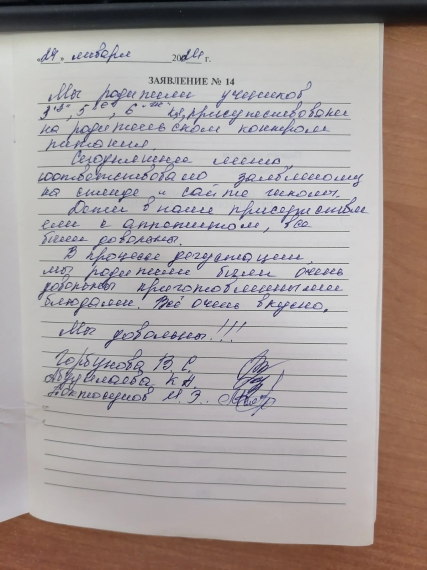 "24" января 2024 г.
ЗАЯВЛЕНИЕ № 14
Мы родители учеников
3 "з", 5 , 6 кл, присутствовали
на родительском контроле
питания.
Сегодняшнее меню
соответствовало заявленому
на стенде и сайте школы.
Дети в наше присутствии
ели с аппетитом, все
были довольны.
В процессе дегустации
мы родители были очень
довольны приготовленными
блюдами. Всё очень вкусно.
Мы довольны!!!
Горбунова В. С.
К. А.
М. Э.